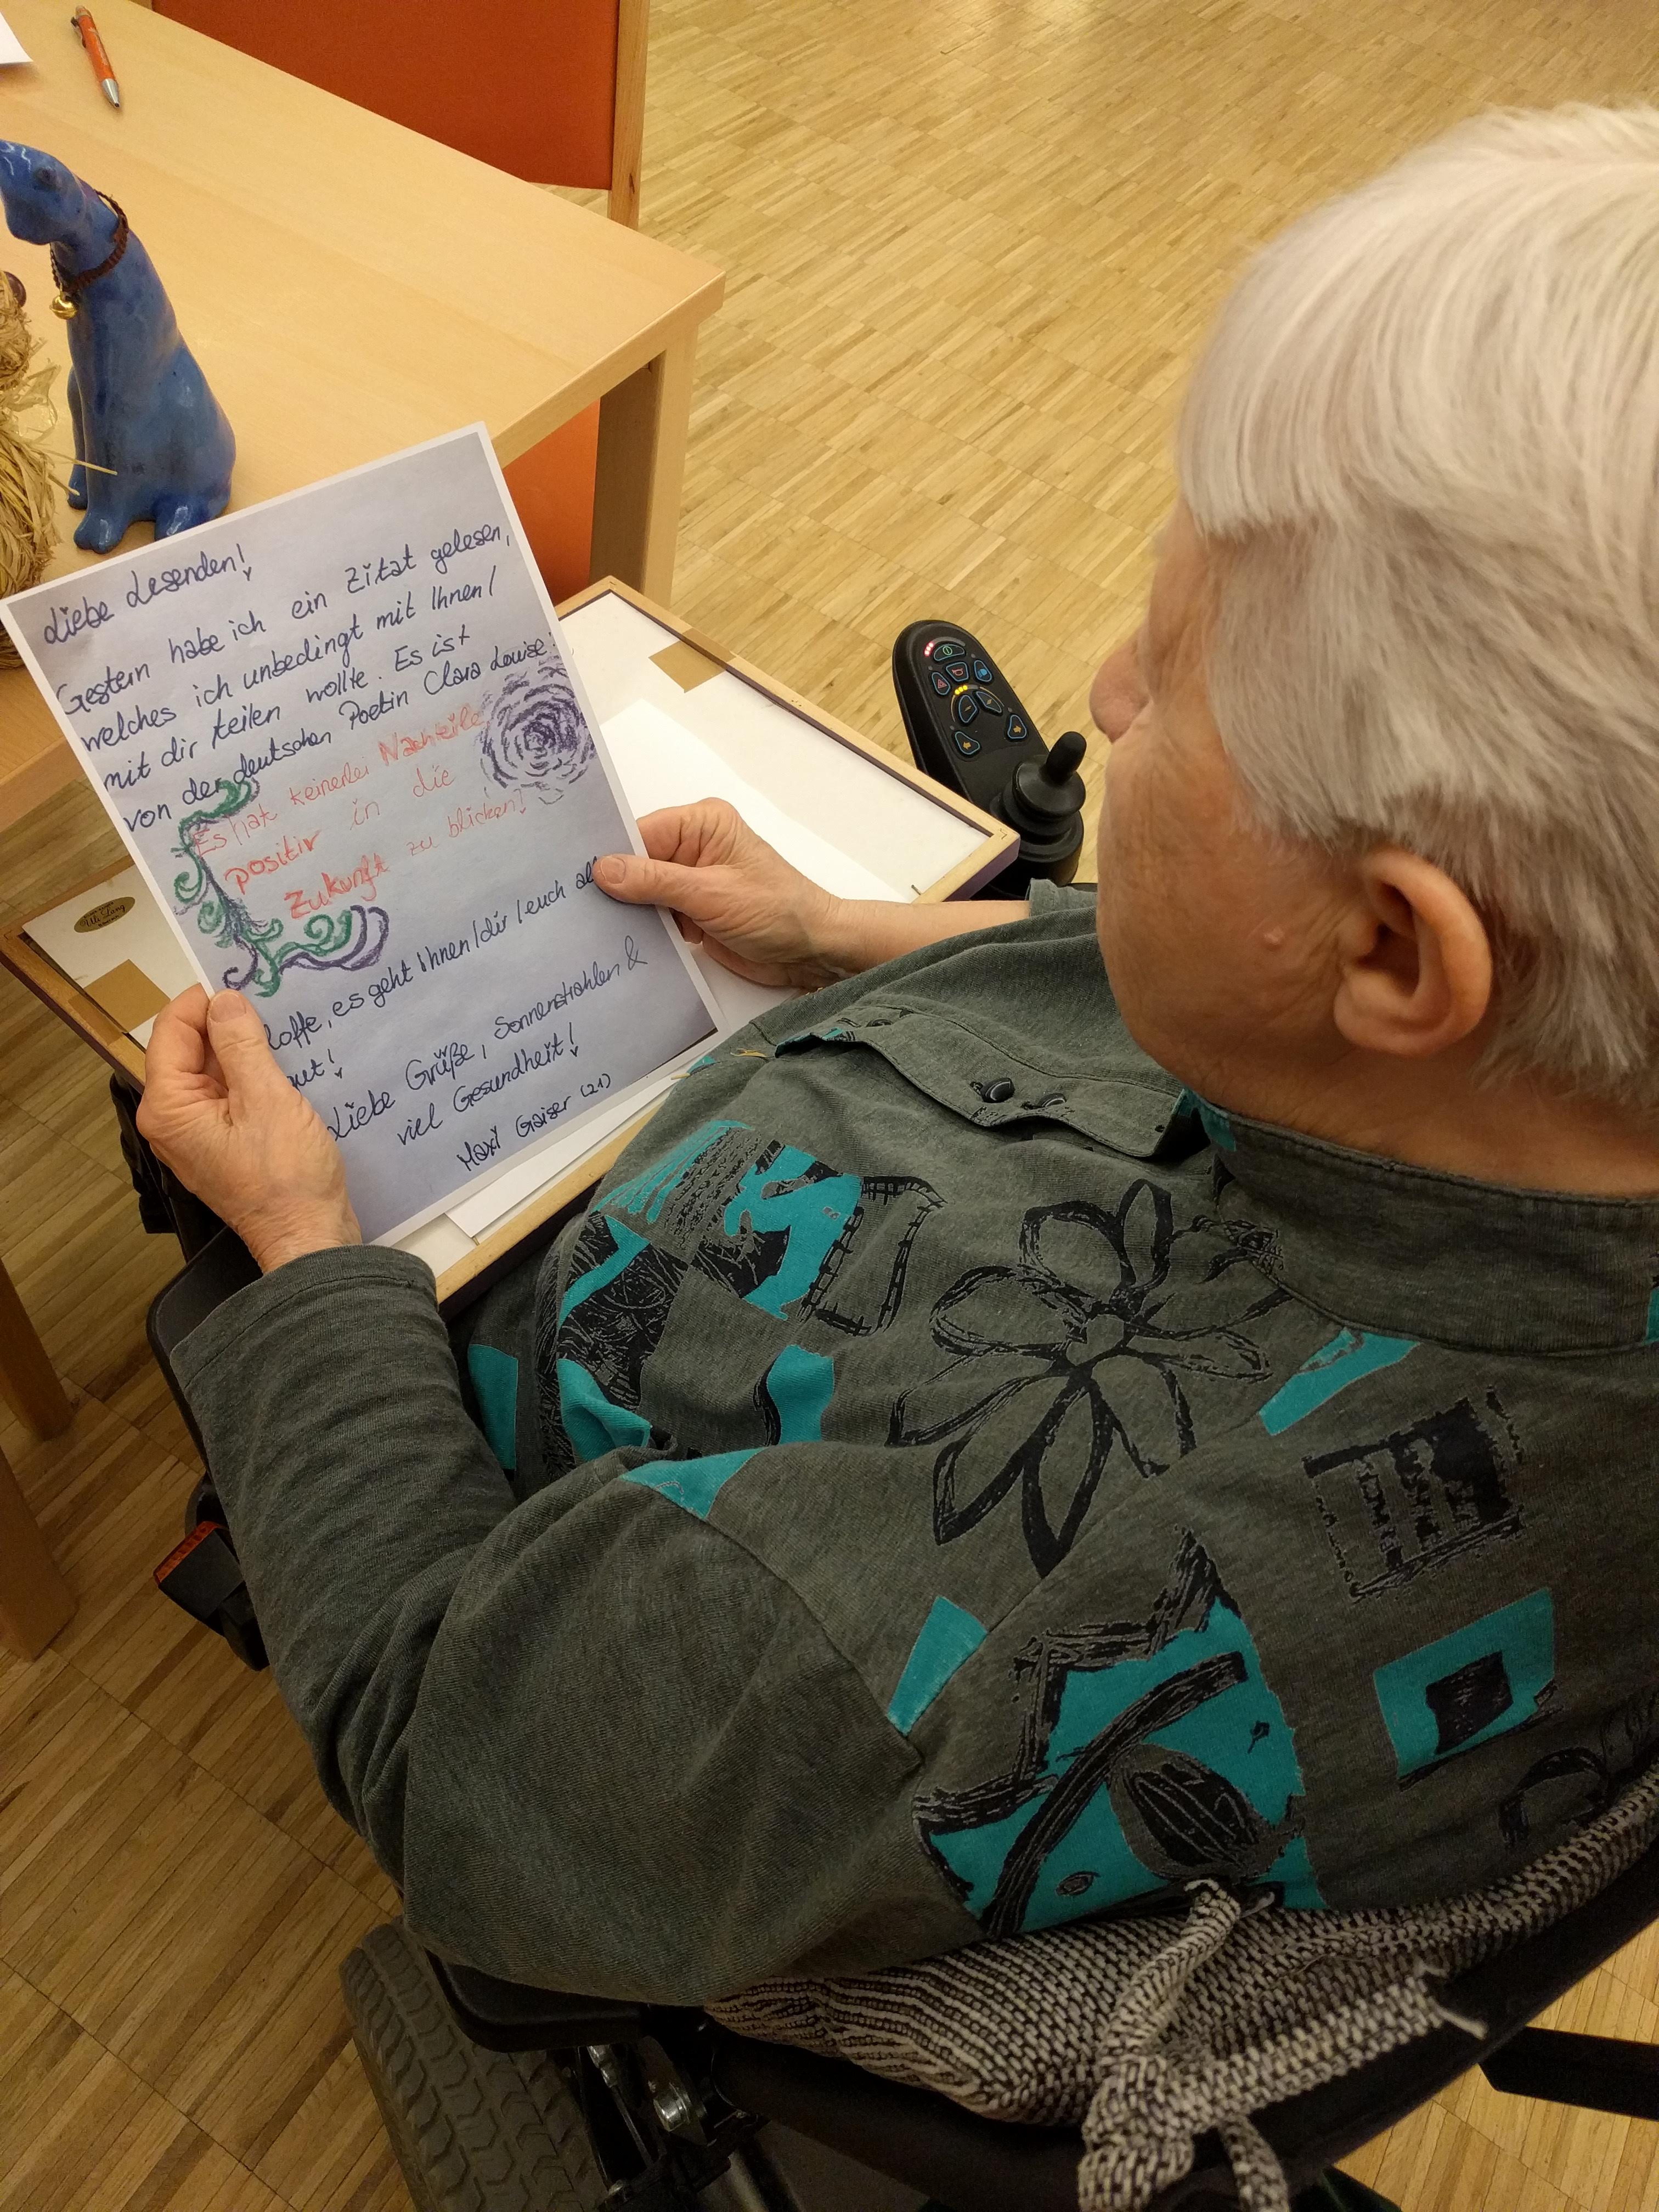 Liebe Lesenden!
Gestern habe ich ein Zitat gelesen,
welches ich unbedingt mit Ihnen/
mit dir teilen wollte. Es ist
von der deutschen Poetin Clara Louise:
Es hat keinerlei Nachteile
positiv in die
Zukunft zu blicken!
hoffe, es geht Ihnen/dir/euch all
gut!
Liebe Grüße, Sonnenstrahlen &
viel Gesundheit!
Maxi Gaiser (21)
Uli Lang